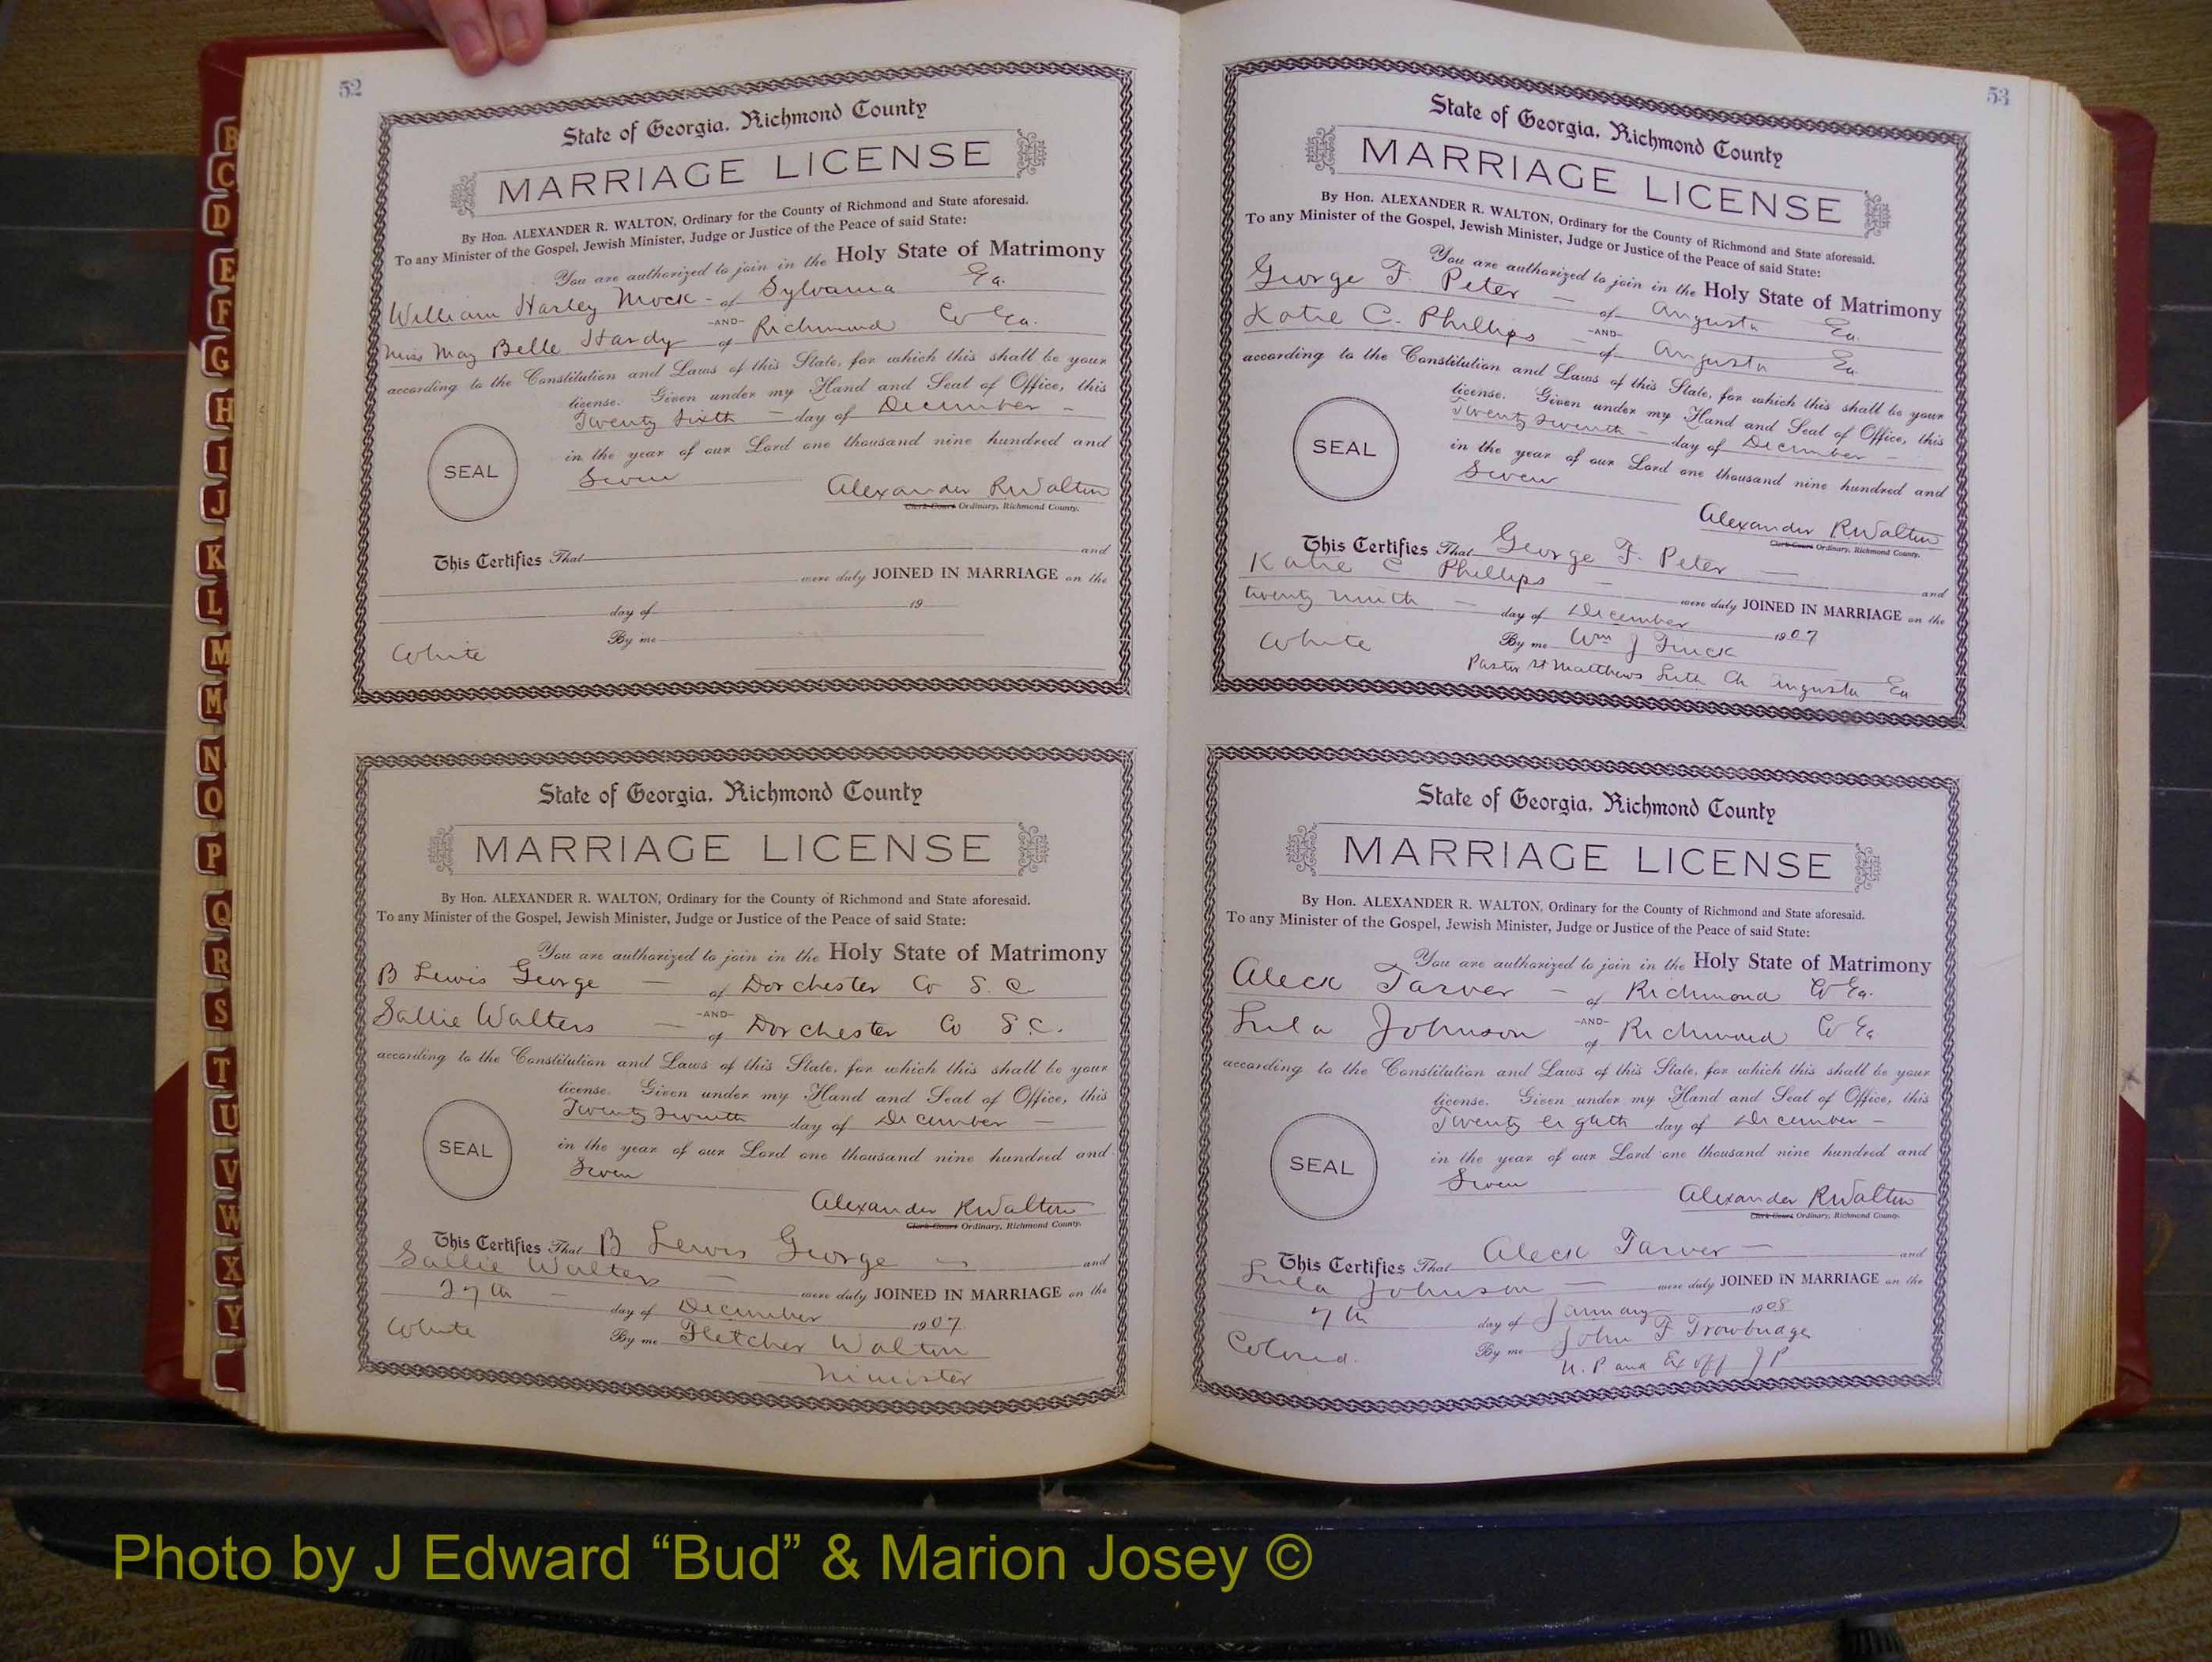 52
State of Georgia, Richmond County
MARRIAGE LICENSE
By Hon. ALEXANDER R. WALTON, Ordinary for the County of Richmond and State aforesaid.
To any Minister of the Gospel, Jewish Minister, Judge or Justice of the Peace of said State:
You are authorized to join in the Holy State of Matrimony
William Harley Mock - of Sylvania Ga.
-AND-
Miss May Belle Hardy of Richmond Co Ga.
according to the Constitution and Laws of this State, for which this shall be your
license. Given under my Hand and Seal of Office, this
Twenty Sixth - day of December -
SEAL
in the year of our Lord one thousand nine hundred and
Seven
Alexander R Walton
Clerk Court Ordinary, Richmond County.
This Certifies That and
were duly JOINED IN MARRIAGE on the
day of 19
White By me
State of Georgia, Richmond County
MARRIAGE LICENSE
By Hon. ALEXANDER R. WALTON, Ordinary for the County of Richmond and State aforesaid.
To any Minister of the Gospel, Jewish Minister, Judge or Justice of the Peace of said State:
You are authorized to join in the Holy State of Matrimony
B Lewis George - of Dorchester Co S.C.
-AND-
Sallie Walters - of Dorchester Co S.C.
according to the Constitution and Laws of this State, for which this shall be your
license. Given under my Hand and Seal of Office, this
Twenty Seventh day of December -
SEAL
in the year of our Lord one thousand nine hundred and
Seven
Alexander R Walton
Clerk Court Ordinary, Richmond County.
This Certifies That B Lewis George - and
Sallie Walters - were duly JOINED IN MARRIAGE on the
27th - day of December 1907
White By me Fletcher Walton
Minister
53
State of Georgia, Richmond County
MARRIAGE LICENSE
By Hon. ALEXANDER R. WALTON, Ordinary for the County of Richmond and State aforesaid.
To any Minister of the Gospel, Jewish Minister, Judge or Justice of the Peace of said State:
You are authorized to join in the Holy State of Matrimony
George F. Peter - of Augusta Ga.
-AND-
Katie C. Phillips - of Augusta Ga
according to the Constitution and Laws of this State, for which this shall be your
license. Given under my Hand and Seal of Office, this
Twenty Seventh - day of December -
SEAL
in the year of our Lord one thousand nine hundred and
Seven
Alexander R Walton
Clerk Court Ordinary, Richmond County.
This Certifies That George F. Peter - and
Katie C Phillips - were duly JOINED IN MARRIAGE on the
twenty ninth - day of December 1907
White By me Wm J Finck
Pastor St Matthews Luth Ch Augusta Ga
State of Georgia, Richmond County
MARRIAGE LICENSE
By Hon. ALEXANDER R. WALTON, Ordinary for the County of Richmond and State aforesaid.
To any Minister of the Gospel, Jewish Minister, Judge or Justice of the Peace of said State:
You are authorized to join in the Holy State of Matrimony
Aleck Tarver - of Richmond Co Ga.
-AND-
Lula Johnson of Richmond Co Ga
according to the Constitution and Laws of this State, for which this shall be your
license. Given under my Hand and Seal of Office, this
Twenty eighth day of December -
SEAL
in the year of our Lord one thousand nine hundred and
Seven
Alexander R Walton
Clerk Court Ordinary, Richmond County.
This Certifies That Aleck Tarver - and
Lula Johnson - were duly JOINED IN MARRIAGE on the
7th day of January 1908
Colored. By me John F Trowbridge
N. P and Ex off J P
B
C
D
E
F
G
H
I
J
K
L
M
M
N
O
P
Q
R
S
T
U
V
W
X
Y
Photo by J Edward “Bud” & Marion Josey ©